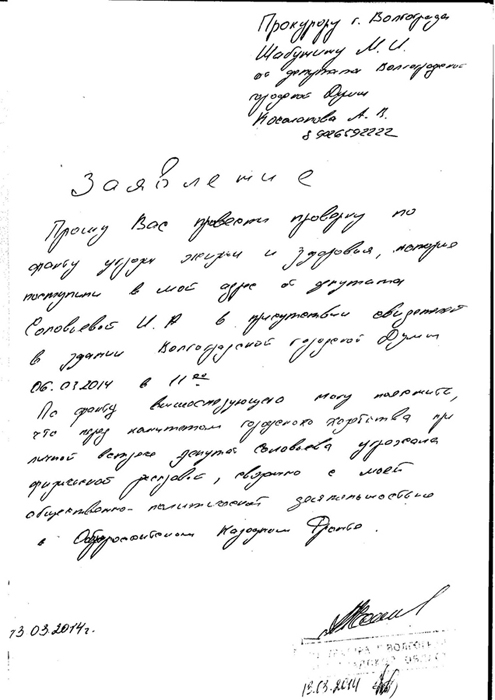 Прокурору г. Волгограда
Шабунину М. И.
от депутата Волгоградской
городской Думы
Косолапова А. В.
89026592222
Заявление
Прошу Вас провести проверку по
факту угрозы жизни и здоровья, которые
поступили в мой адрес от депутата
Соловьевой И. А в присутствии свидетелей
в здании Волгоградской городской Думы
06.03.2014 в 11 00
По факту вышеследующего могу пояснить,
что перед комитетом городского хозяйства при
личной встрече депутат Соловьева угрожала
физической расправой, связанно с моей
общественно-политической деятельностью
в Общероссийском Народном Фронте.
13.03.2014г.
ВОЛГОГРАДА
13.03.2014